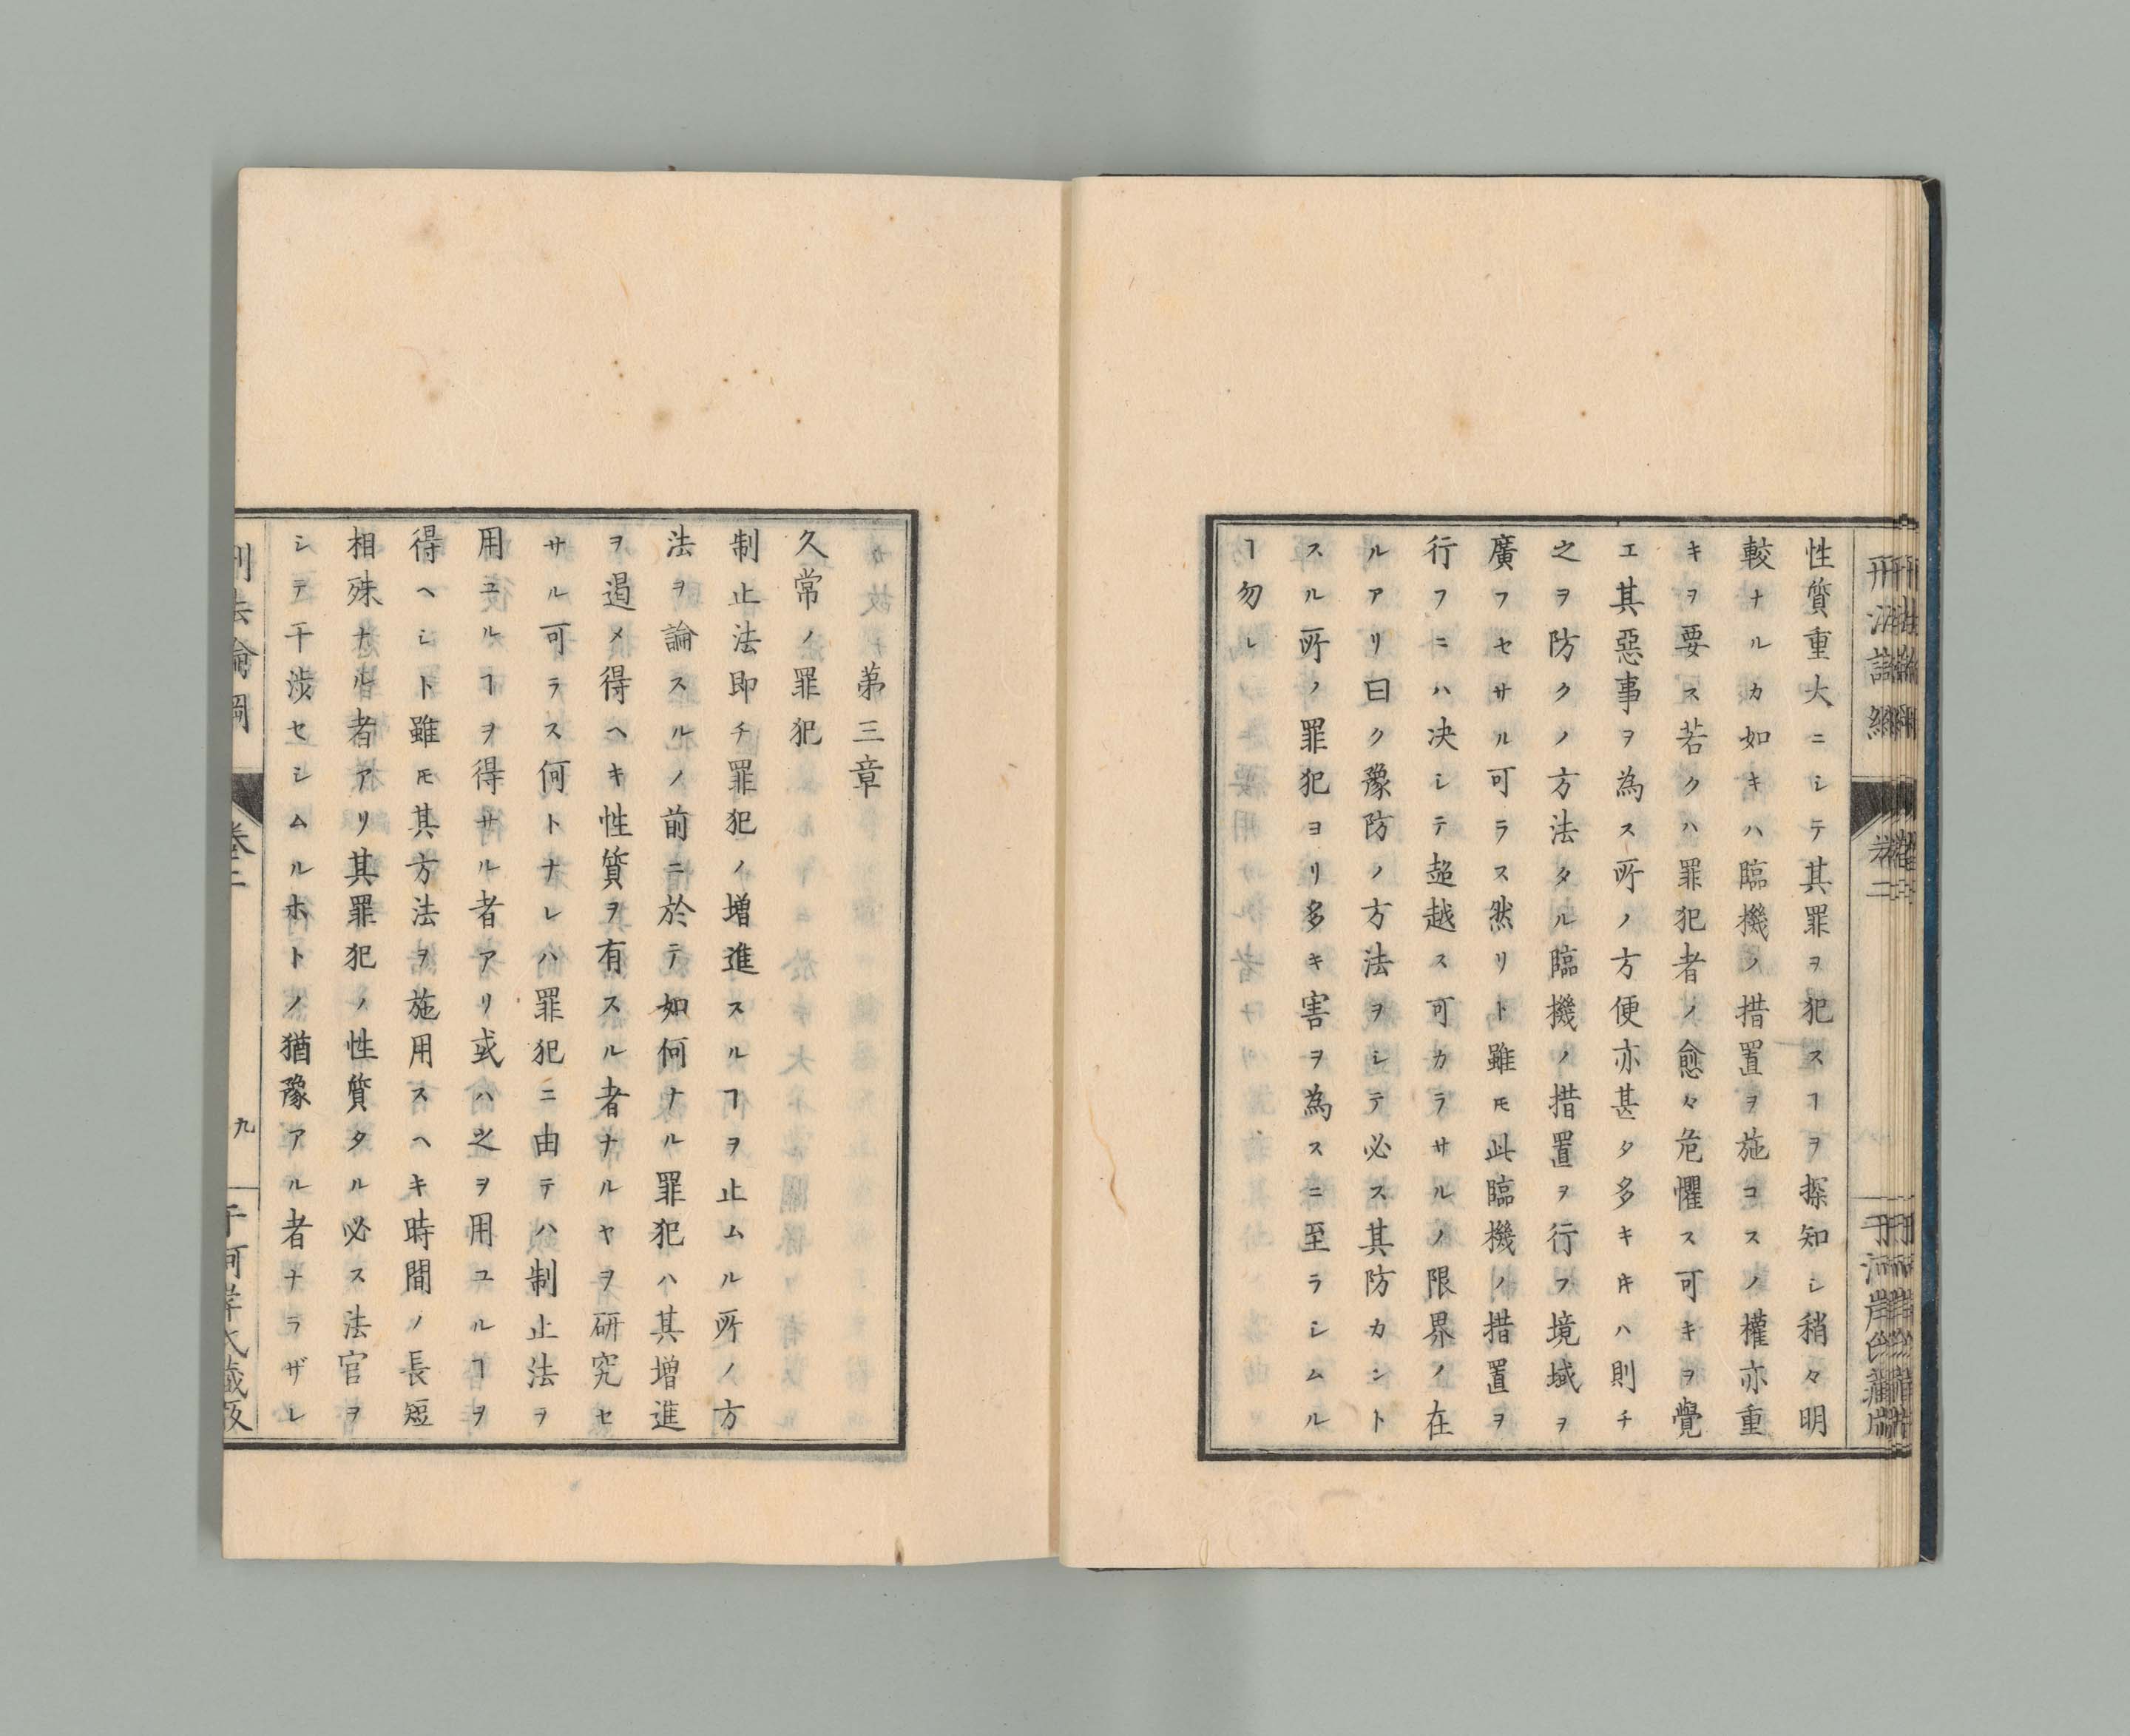 性質重大ニシテ其罪ヲ犯スヿヲ探知シ稍々明
較ナルカ如キハ臨機ノ措置ヲ施コスノ權亦重
キヲ要ス若クハ罪犯者ノ愈々危懼ス可キヲ覺
エ其惡事ヲ為ス所ノ方便亦甚タ多キ𪜈ハ則チ
之ヲ防クノ方法タル臨機ノ措置ヲ行フ境域ヲ
廣フセサル可ラス然リト雖𪜈此臨機ノ措置ヲ
行フニハ决シテ超越ス可カラサルノ限界ノ在
ルアリ曰ク豫防ノ方法ヲシテ必ス其防カント
スル所ノ罪犯ヨリ多キ害ヲ為スニ至ラシムル
ヿ勿レ
第三章
久常ノ罪犯
制止法即チ罪犯ノ增進スルヿヲ止ムル所ノ方
法ヲ論スルノ前ニ於テ如何ナル罪犯ハ其增進
ヲ遏メ得ヘキ性質ヲ有スル者ナルヤヲ研究セ
サル可ラス何トナレハ罪犯ニ由テハ制止法ヲ
用ユルヿヲ得サル者アリ或ハ之ヲ用ユルヿヲ
得ヘシト雖𪜈其方法ヲ施用スヘキ時間ノ長短
相殊ナル者アリ其罪犯ノ性質タル必ス法官ヲ
シテ干渉セシムルホトノ猶豫アル者ナラザレ
刑法論綱
卷二
九